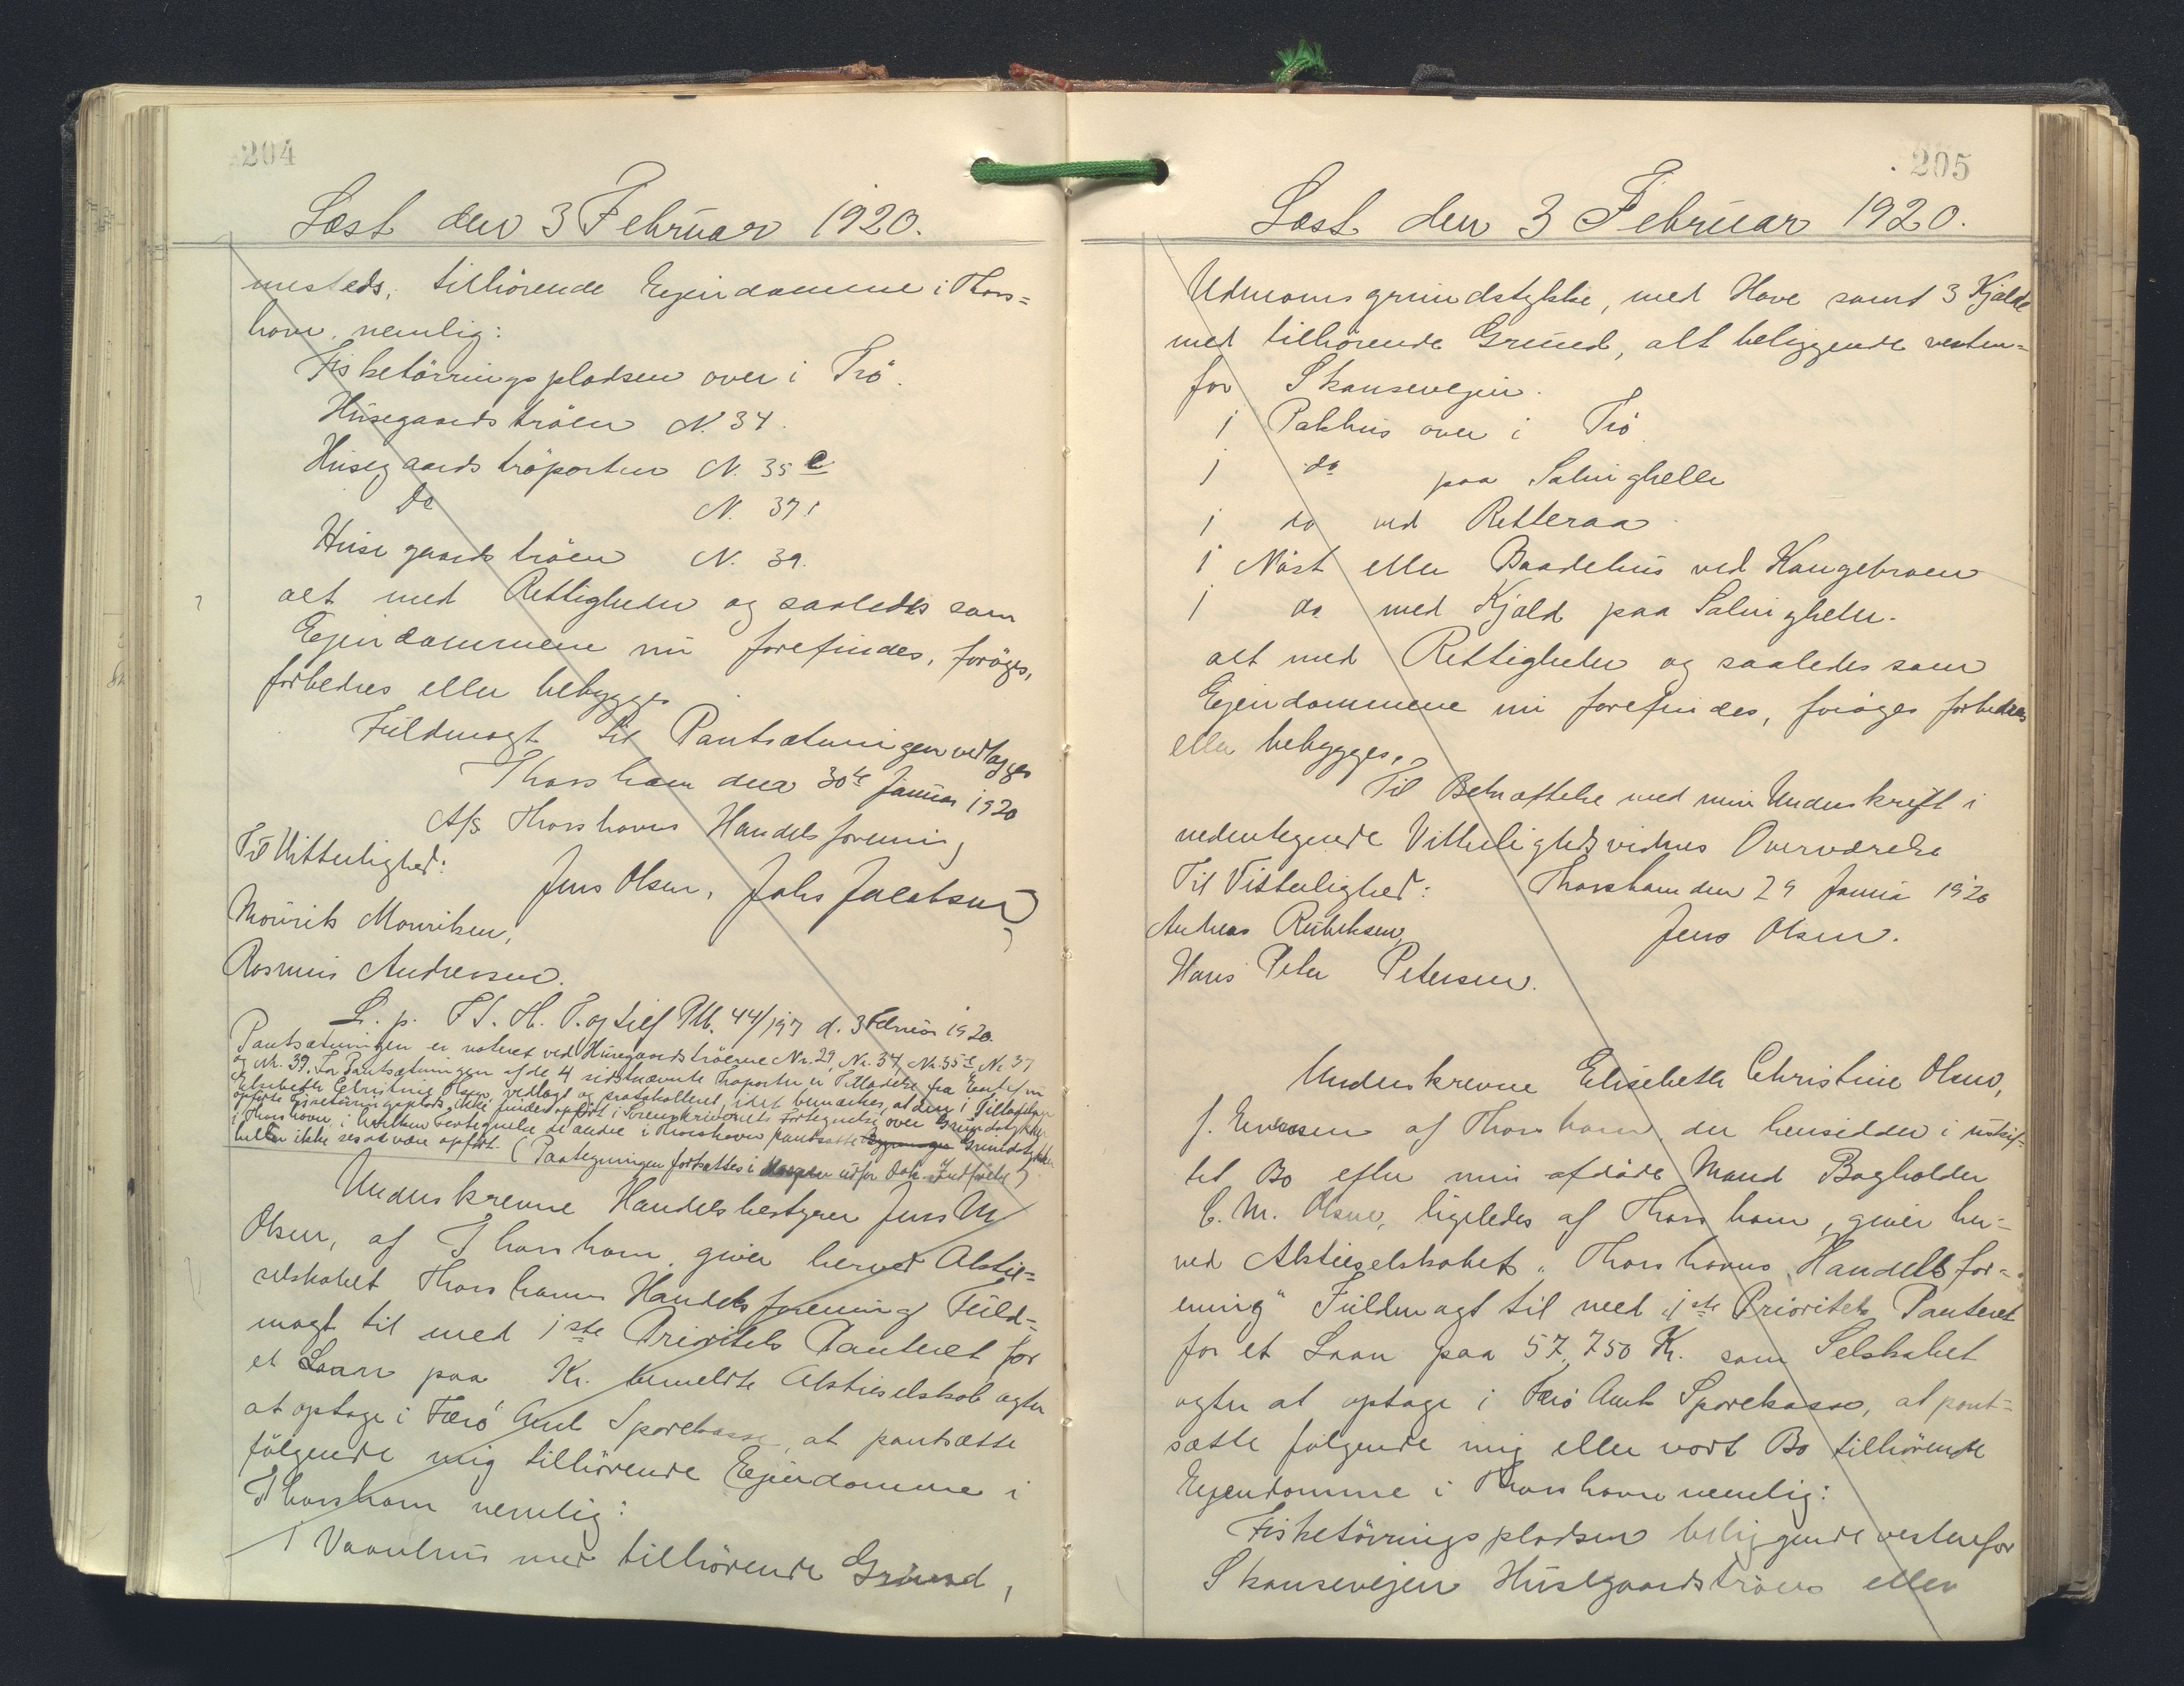 204
Læst den 3 Februar 1920.
mesteds, tilhørende Ejendomme i Thors=
havn, nemlig:
Fisketörringspladsen over i Trö.
Húsegaards tröen N. 34.
Húsegaards tröporten N. 35 e
Do N. 37.
Húsegaards tröen N. 39.
alt med Rettigheder og saaledes som
Ejendommene nú forefindes, foröges,
forbedres eller bebygges
Fúldmagt til Pantsætningen vedlægges
Thorshavn den 30te Januar 1920
A/S Thorshavns Handelsforening
Til Vitterlighed:
Jens Olsen, Johs Jacobsen
Mourits Mouritsen,
Rasmus Andreasen.
L. p. F T. H. P. og Lief Ptb. 44/197 d. 3 Februar 1920.
Pantsætningen er noteret ved Húsegaardströerne Nr. 29, Nr. 34, Nr. 35 e, Nr 37
og Nr. 39. For Pantsætningen af de 4 sidstnævnte Traporter er Tilladelse fra Enkefrú
Elisebeth Christine Olsen, vedlagt og protokolleret, idet bemærkes, at den i Tilladelsen
opförte Fisketörringsplads ikke findes opfört i Sorenskriveriets Fortegnelse over Grundstykker
i Thorshavn, i hvilken Fortegnelse de andre i Thorshavn pantsatte Grundstykker
heller ikke ses at være opfört. (Paategningen fortsættes i Margen udfor Dok. Indförelse)
Underskrevne Handelsbestyrer Jens M
Olsen, af Thorshavn, giver herved Aktie=
selskabet Thorshavns Handelsforening Fúld=
magt til med 1ste Prioritets Panteret for
et Laan paa Kr. bemeldte Aktieselskab agter
at optage i Færö Amts Sparekasse, at pantsætte
fölgende mig tilhörende Ejendomme i
Thorshavn nemlig:
1 Vaanhús med tilhörende Grund,
205
Læst den 3 Februar 1920.
Udmarksgrundstykke, med Have samt 3 Kjald
med tilhörende Grund, alt beliggende vesten=
for Skansevejen.
1 Pakhús over i Trö
1 do paa Salvighella
1 do ved Retteraa
1 Nöst eller Baadehús ved Kongebroen
1 do med Kjald paa Salvighella.
alt med Rettigheder og saaledes som
Ejendommene nú forefindes, foröges forbedres
eller bebygges.
Til Bekræftelse med min Underskrift i
nedentegnede Vitterlighedsvidners Overværelse
Til Vitterlighed: Thorshavn den 29 Januar 1920
Andreas Rubeksen,
Jens Olsen.
Hans Peter Petersen.
Underskrevne Elisebeth Christine Olsen,
f. Evensen af Thorshavn, der hensidder i uskif=
tet Bo efter min afdöde Mand Bogholder
C. M. Olsen, ligeledes af Thorshavn, giver her=
ved Aktieselskabet "Thorshavns Handelsfor=
ening" Fúldmagt til med 1ste Prioritets Panteret
for et Laan paa 57,750 Kr. som Selskabet
agter at optage i Færö Amts Sparekasse, at pant=
sætte fölgende mig eller vort Bo tilhörende
Ejendomme i Thorshavn nemlig:
Fisketörringspladsen beliggende vestenfor
Skansevejen Húsegaardströen eller